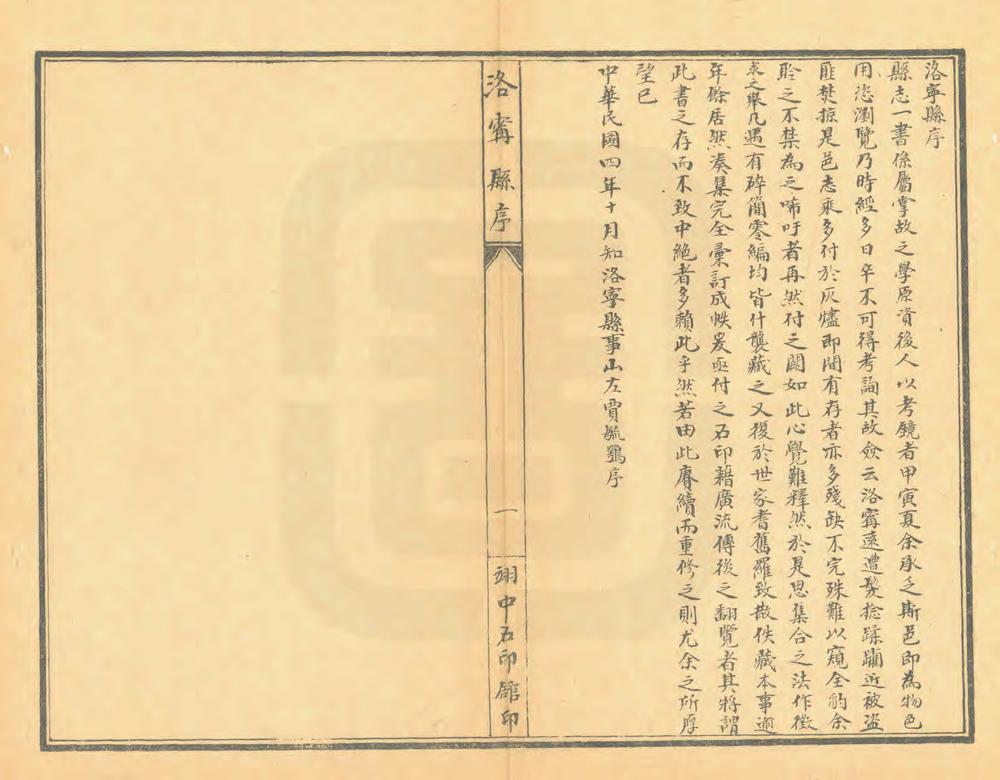 洛寧縣序
縣志一書係屬掌故之學原資後人以考鏡者甲寅夏余承乏斯邑即為物色
用恣瀏覽乃時經多日卒不可得考詢其故僉云洛甯遠遭髮捻蹂躪近被盜
匪焚掠是邑志乘多付於灰燼即間有存者亦多殘缺不完殊難以窺全豹余
聆之不禁為之唏吁者再然付之闕如此心覺難釋然於是思集合之法作徵
求之舉凡遇有碎簡零編均皆什襲藏之又復於世家耆舊羅致散佚藏本事逾
年餘居然湊集完全彙訂成帙爰亟付之石印藉廣流傳後之翻覽者其將謂
此書之存而不致中絕者多賴此乎然若由此賡續而重修之則尤余之所厚
望已
中華民國四年十月知洛寧縣事山左賈毓鶚序
洛甯縣序
一
翊中石印館印